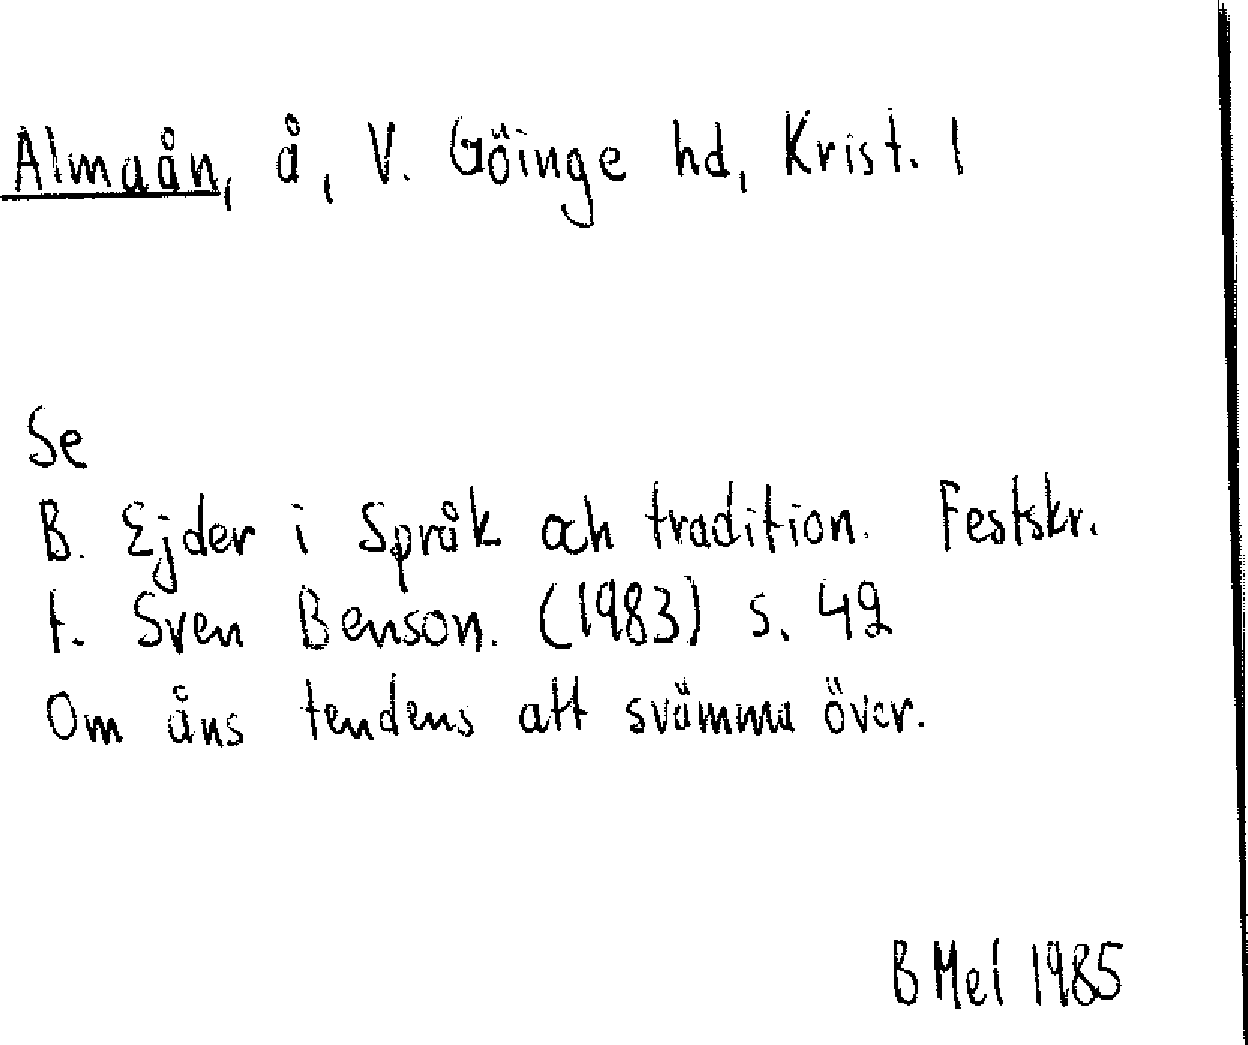 Almaån, å, V. Göinge hd, Krist. l
Se
B. Ejder i Språk och tradition. Festskr.
t. Sven Benson. (1983) s. 42
Om åns tendens att svämma över.
B Mel 1985